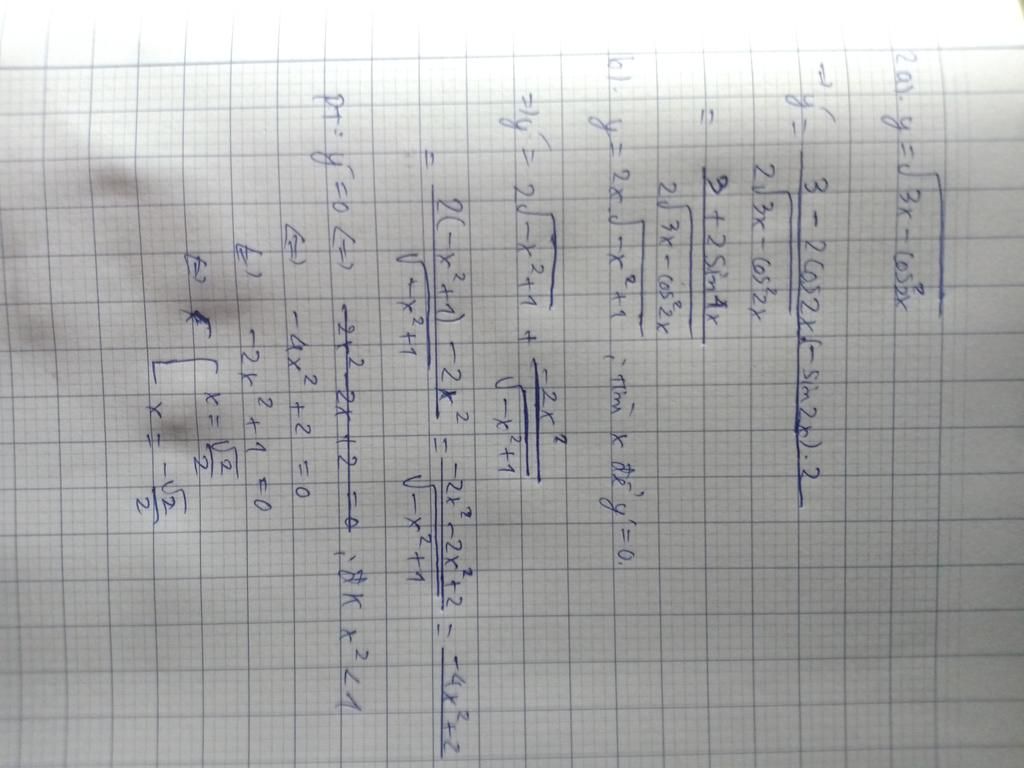 2a). y = √(3x - cos²2x)
=> y' = (3 - 2cos2x(-sin2x).2) / (2√(3x - cos²2x))
= (3 + 2sin4x) / (2√(3x - cos²2x))
b). y = 2x√(-x²+1) ; tìm x để y' = 0.
=> y' = 2√(-x²+1) + (-2x²) / √(-x²+1)
= (2(-x²+1) - 2x²) / √(-x²+1) = (-2x² - 2x² + 2) / √(-x²+1) = -4x²+2
PT: y' = 0 (=) -2x² - 2x + 2 = 0 ; ĐK x² < 1
(=) -4x² + 2 = 0
(=) -2x² + 1 = 0
(=) [ x = √2/2
x = -√2/2